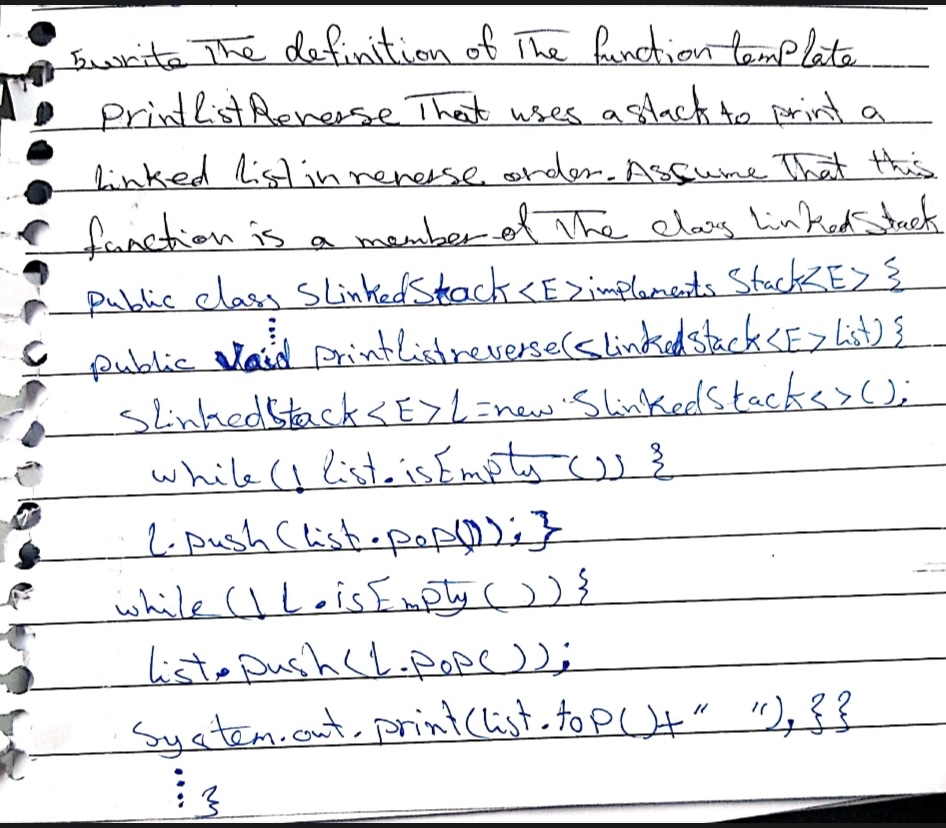 5 write The definition of The function template
printListReverse That uses a stack to print a
linked list in reverse order. Assume That this
function is a member of The class linkedStack
public class SLinkedStack<E> implements Stack<E> {
public void printlistreverse(SLinkedStack<E> list) {
SLinkedStack<E> L = new SLinkedStack<>();
while (! list.isEmpty ()) {
L.push (list.pop()); }
while (! L.isEmpty ()) {
list.push(L.pop());
System.out.print(list.top()+" "); } }
}